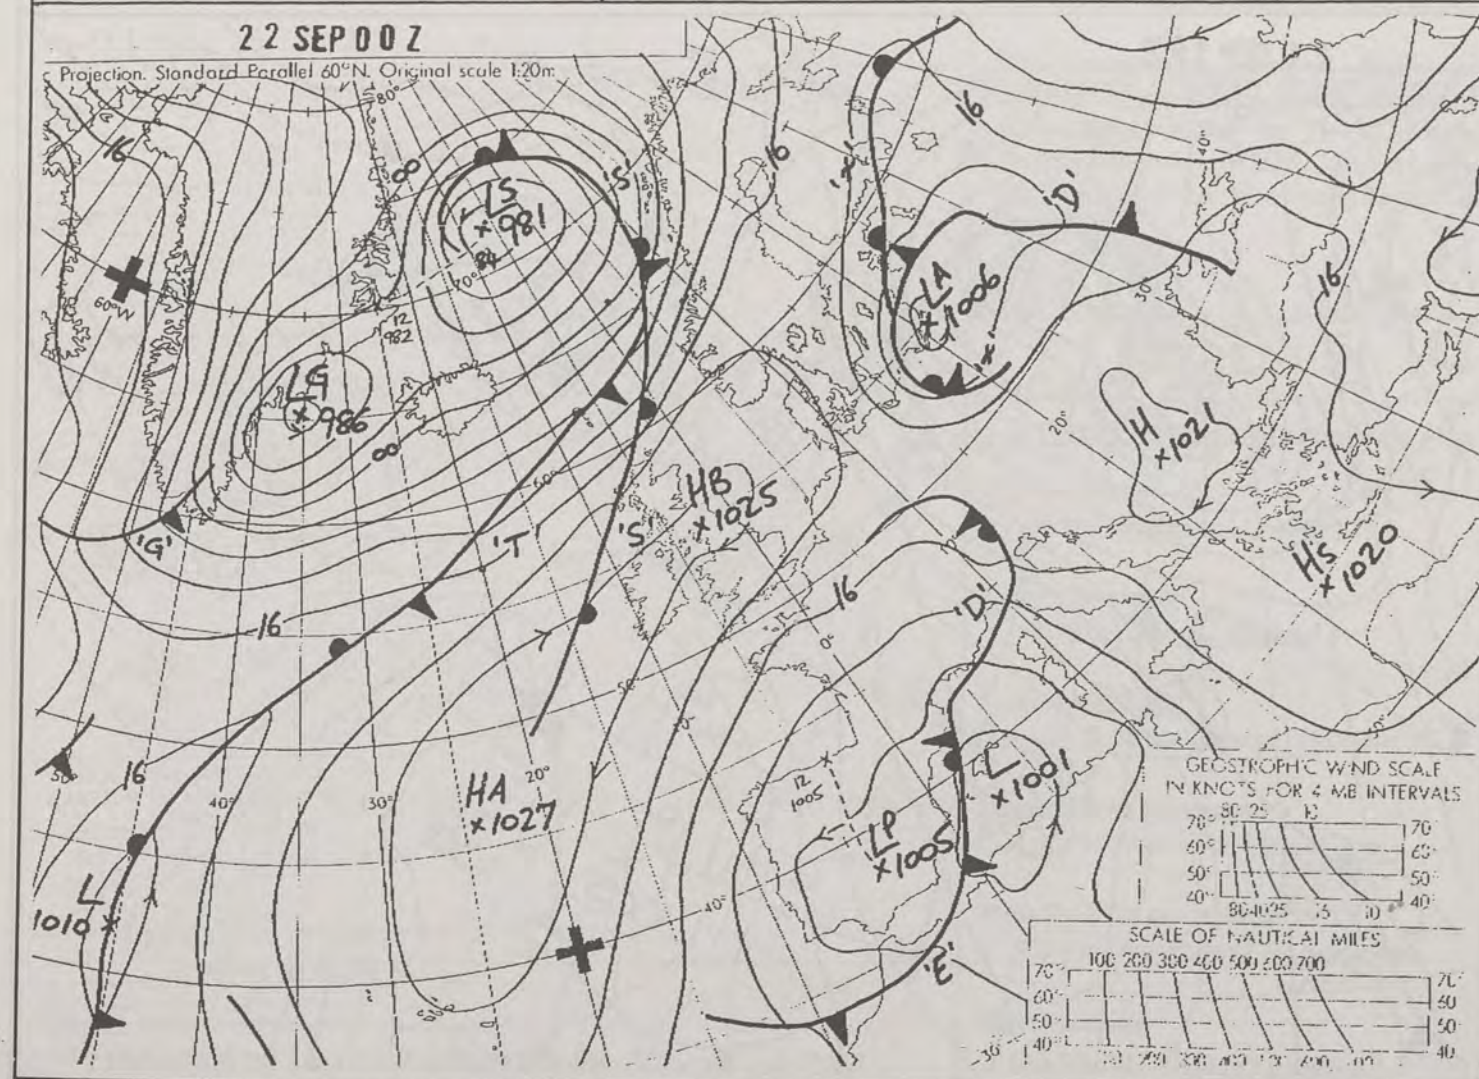 22 SEP 00Z
Projection. Standard Parallel 60°N. Original scale 1:20m.
80°
16
∞
LS
×981
84
'S'
70°
16
'X'
16
40°
'D'
LA
×1006
'X'
30°
16
60°W
12
982
LG
×986
∞
60°
20°
H
×1021
HB
×1025
HS
×1020
'G'
'T'
'S'
16
16
'D'
0°
50°
50°
16
40°
30°
20°
HA
×1027
12
1005
L
×1001
LP
×1005
L
1010×
40°
'E'
30°
GEOSTROPHIC WIND SCALE
IN KNOTS FOR 4 MB INTERVALS
80 25 10
70° 70°
60° 60°
50° 50°
40° 40°
80 40 25 15 10
SCALE OF NAUTICAL MILES
100 200 300 400 500 600 700
70° 70°
60° 60
50° 50
40° 40